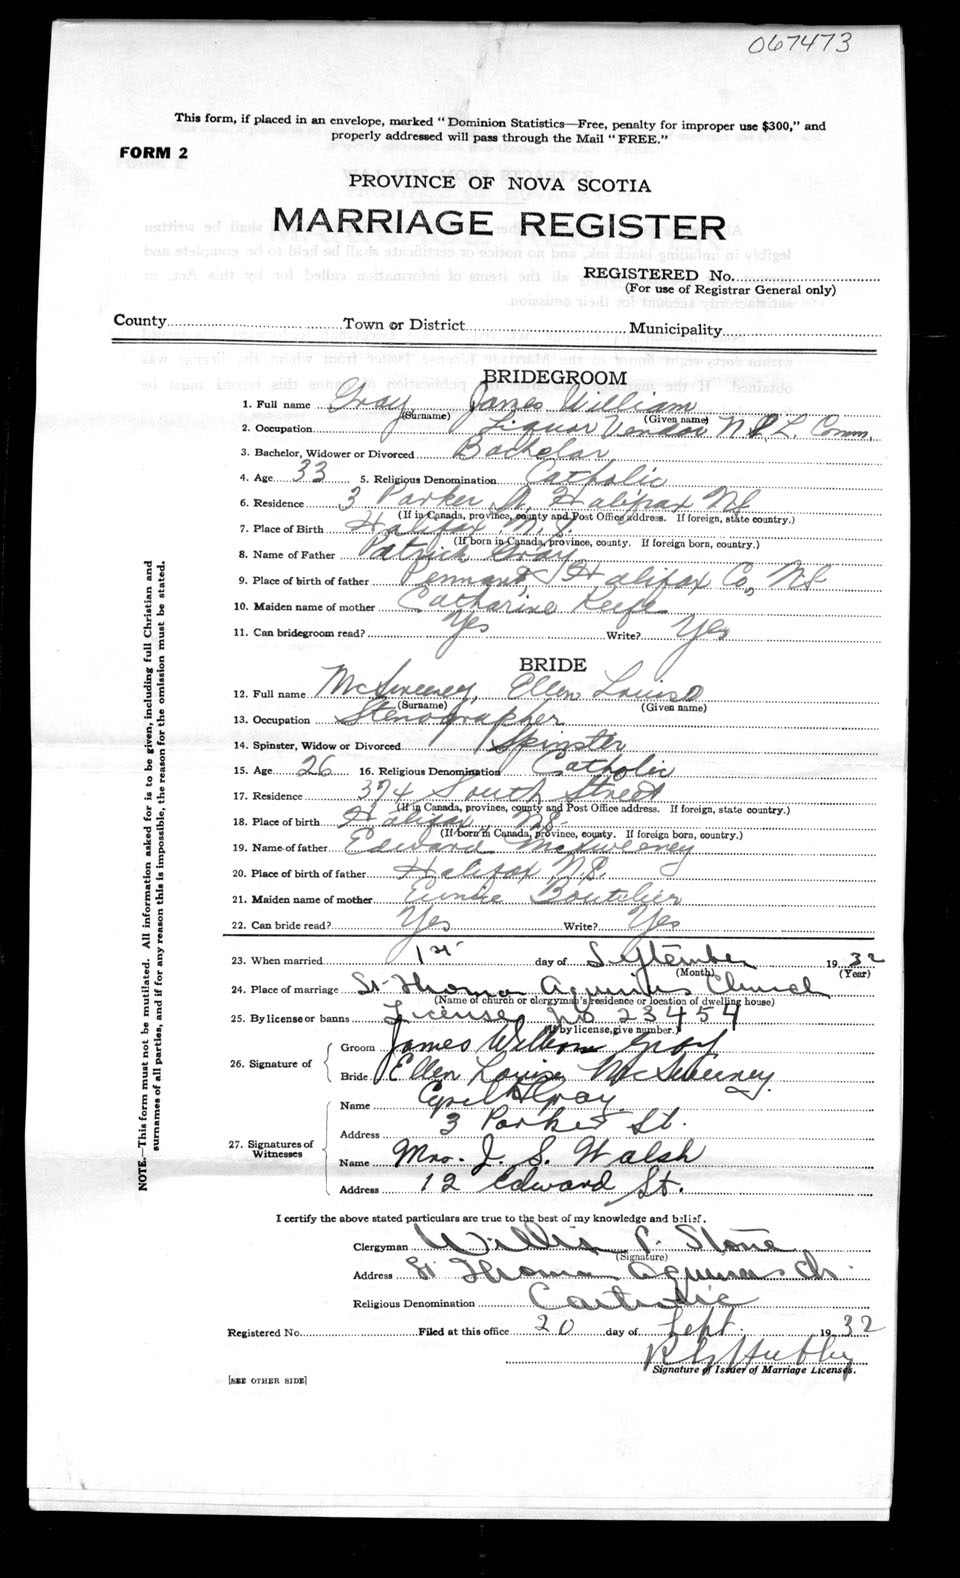 067473
This form, if placed in an envelope, marked "Dominion Statistics—Free, penalty for improper use $300," and
properly addressed will pass through the Mail "FREE."
FORM 2
PROVINCE OF NOVA SCOTIA
MARRIAGE REGISTER
REGISTERED No.
(For use of Registrar General only)
County Town or District Municipality
BRIDEGROOM
1. Full name Gray James William
(Surname) (Given name)
2. Occupation Liquor Vendor N.S. L. Comm.
3. Bachelor, Widower or Divorced Bachelor
4. Age 33 5. Religious Denomination Catholic
6. Residence 3 Parker St, Halifax NS
(If in Canada, province, county and Post Office address. If foreign, state country.)
7. Place of Birth Halifax N.S.
(If born in Canada, province, county. If foreign born, country.)
8. Name of Father Patrick Gray
9. Place of birth of father Pennant, Halifax Co, NS
10. Maiden name of mother Catharine Keefe
11. Can bridegroom read? Yes Write? Yes
BRIDE
12. Full name McSweeney, Ellen Louise
(Surname) (Given name)
13. Occupation Stenographer
14. Spinster, Widow or Divorced Spinster
15. Age 26 16. Religious Denomination Catholic
17. Residence 374 South Street
(If in Canada, province, county and Post Office address. If foreign, state country.)
18. Place of birth Halifax, NS.
(If born in Canada, province, county. If foreign born, country.)
19. Name of father Edward McSweeney
20. Place of birth of father Halifax N.S.
21. Maiden name of mother Eunice Boutelier
22. Can bride read? Yes Write? Yes
23. When married 1st day of September 1932
(Month) (Year)
24. Place of marriage St. Thomas Aquinas Church
(Name of church or clergyman's residence or location of dwelling house)
25. By license or banns License No 23454
(If by license, give number.)
26. Signature of
Groom James William Gray
Bride Ellen Louise McSweeney
27. Signatures of Witnesses
Name Cyril Gray
Address 3 Parker St.
Name Mrs. J. S. Walsh
Address 12 Edward St.
I certify the above stated particulars are true to the best of my knowledge and belief.
Clergyman Willis P. Stone
(Signature)
Address St Thomas Aquinas Ch.
Religious Denomination Catholic
Registered No. Filed at this office 20 day of Sept. 1932
Hubley
Signature of Issuer of Marriage Licenses.
[SEE OTHER SIDE]
NOTE.—This form must not be mutilated. All information asked for is to be given, including full Christian and
surnames of all parties, and if for any reason this is impossible, the reason for the omission must be stated.